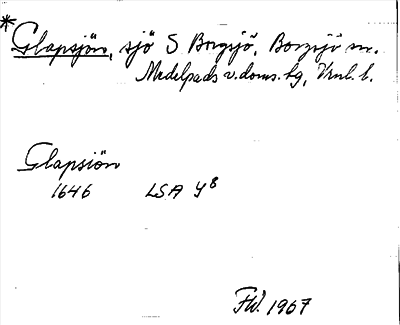 * Glapsjön, sjö S Borgsjö, Borgsjö sn.
Medelpads v. doms. tg, Vnl. l.
Glapsiön
1646 LSA Y8
FW. 1967